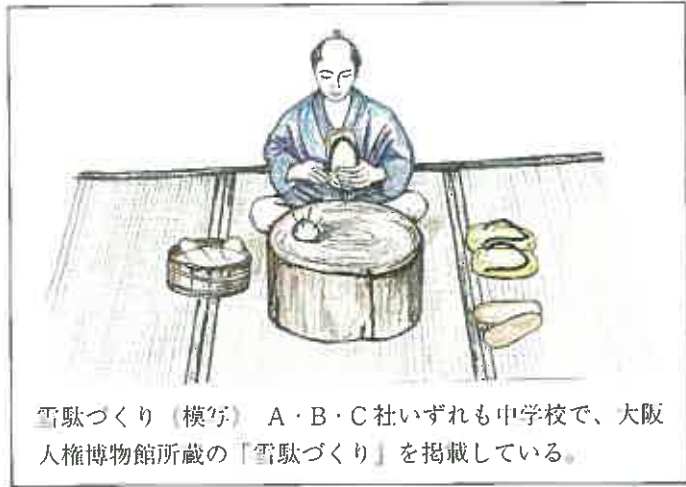 雪駄づくり（模写）　A・B・C社いずれも中学校で、大阪
人権博物館所蔵の「雪駄づくり」を掲載している。